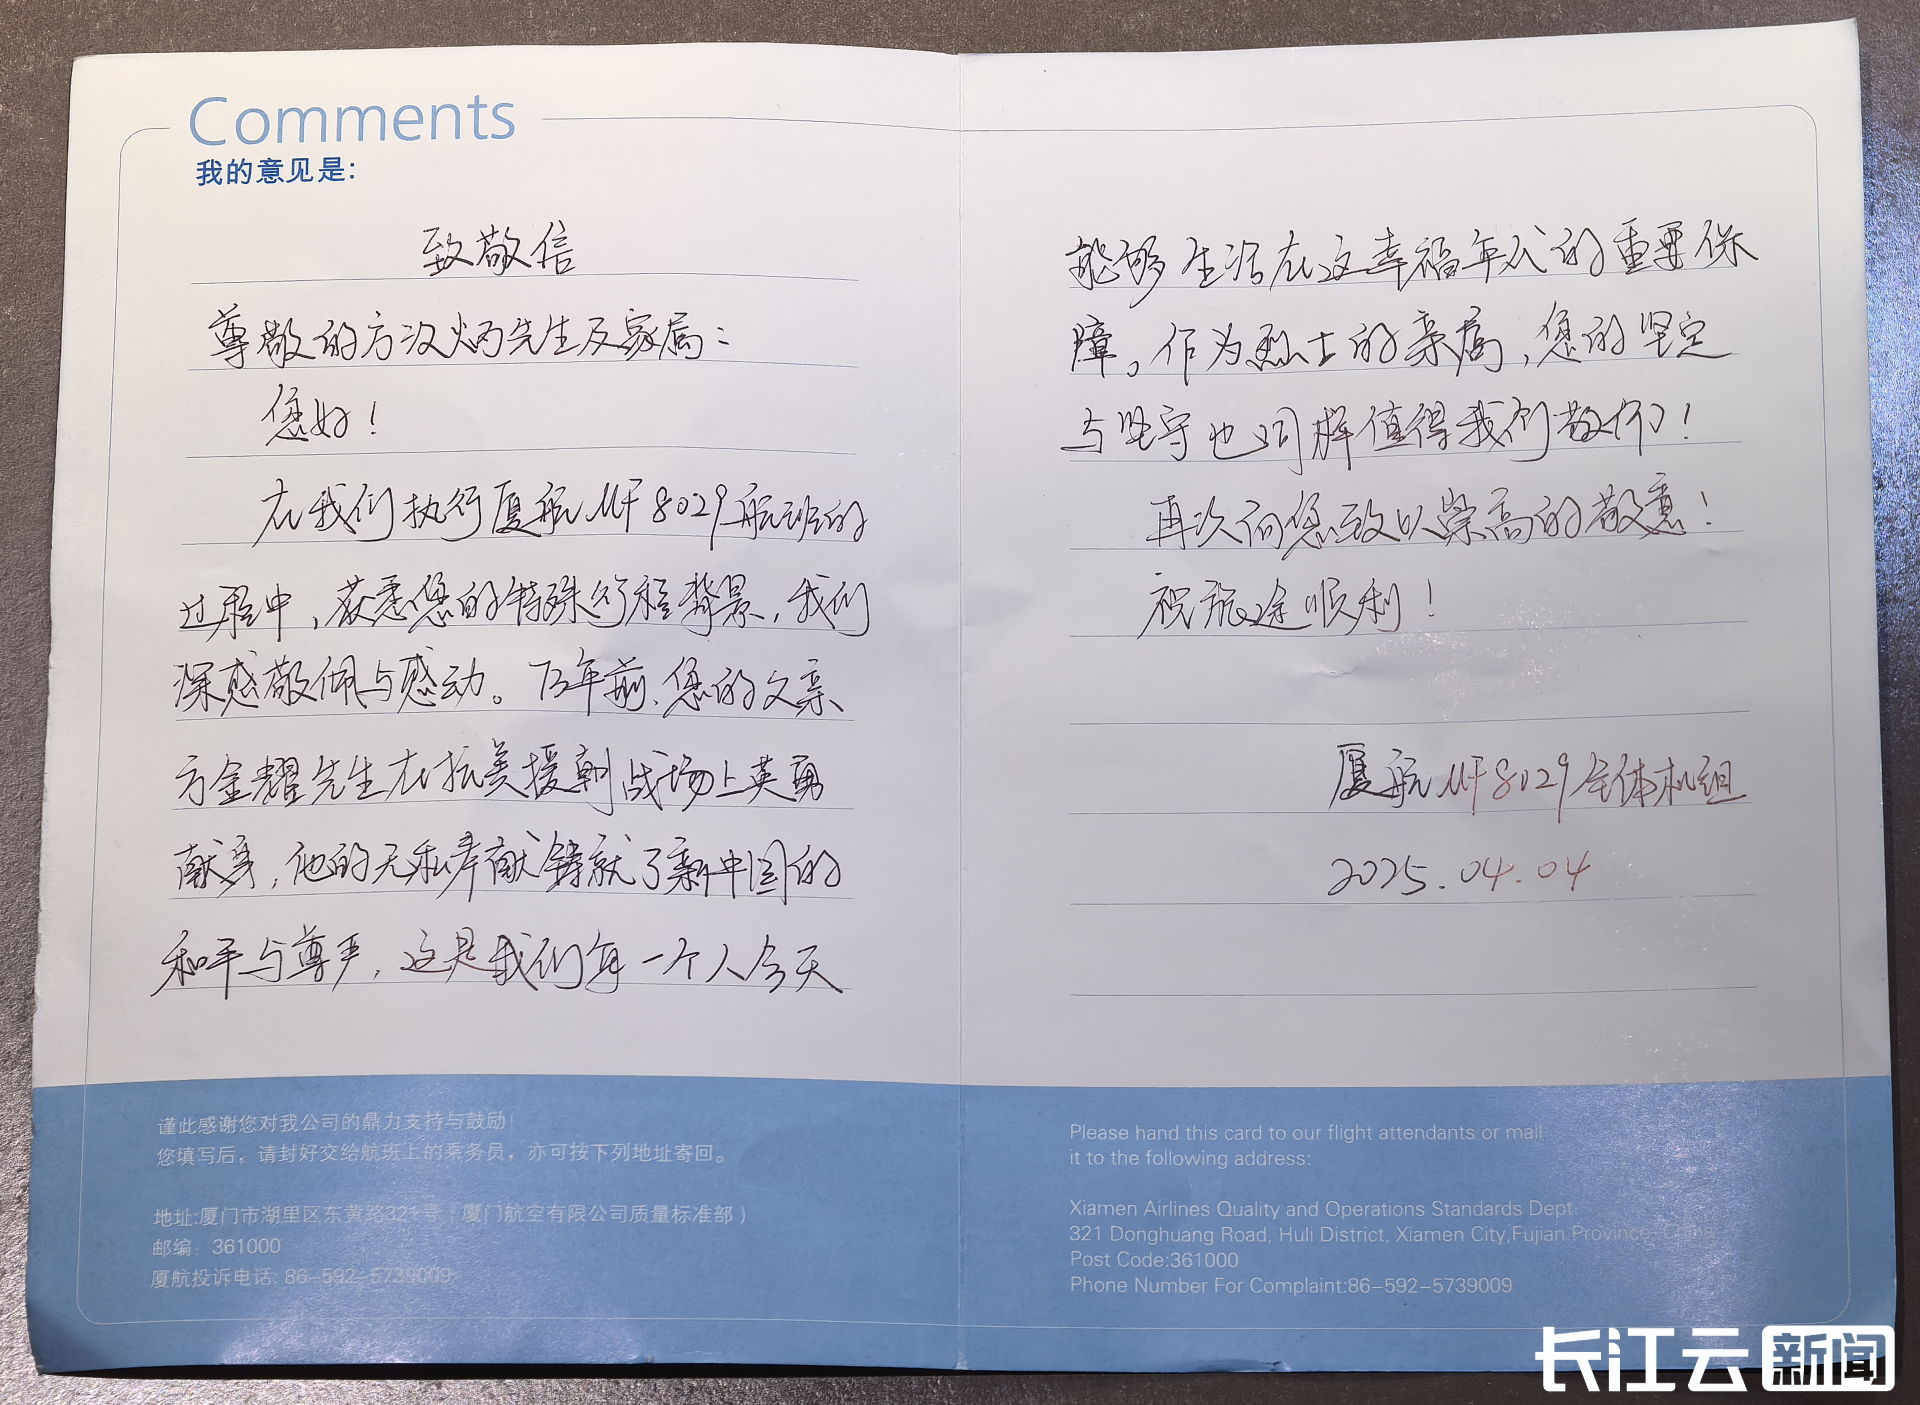 Comments
我的意见是:
致敬信
尊敬的方汉炳先生及家属：
您好！
在我们执行厦航MF8029航班的
过程中，获悉您的特殊行程背景，我们
深感敬佩与感动。73年前，您的父亲
方金耀先生在抗美援朝战场上英勇
献身，他的无私奉献铸就了新中国的
和平与尊严，这是我们每一个人今天
能够生活在这幸福年代的重要保
障。作为烈士的亲属，您的坚定
与坚守也同样值得我们敬仰！
再次向您致以崇高的敬意！
祝旅途顺利！
厦航MF8029全体机组
2025.04.04
谨此感谢您对我公司的鼎力支持与鼓励！
您填写后，请封好交给航班上的乘务员，亦可按下列地址寄回。
地址:厦门市湖里区东黄路321号（厦门航空有限公司质量标准部）
邮编：361000
厦航投诉电话: 86-592-5739009
Please hand this card to our flight attendants or mail
it to the following address:
Xiamen Airlines Quality and Operations Standards Dept.
321 Donghuang Road, Huli District, Xiamen City,Fujian Province, China
Post Code:361000
Phone Number For Complaint:86-592-5739009
长江云 新闻